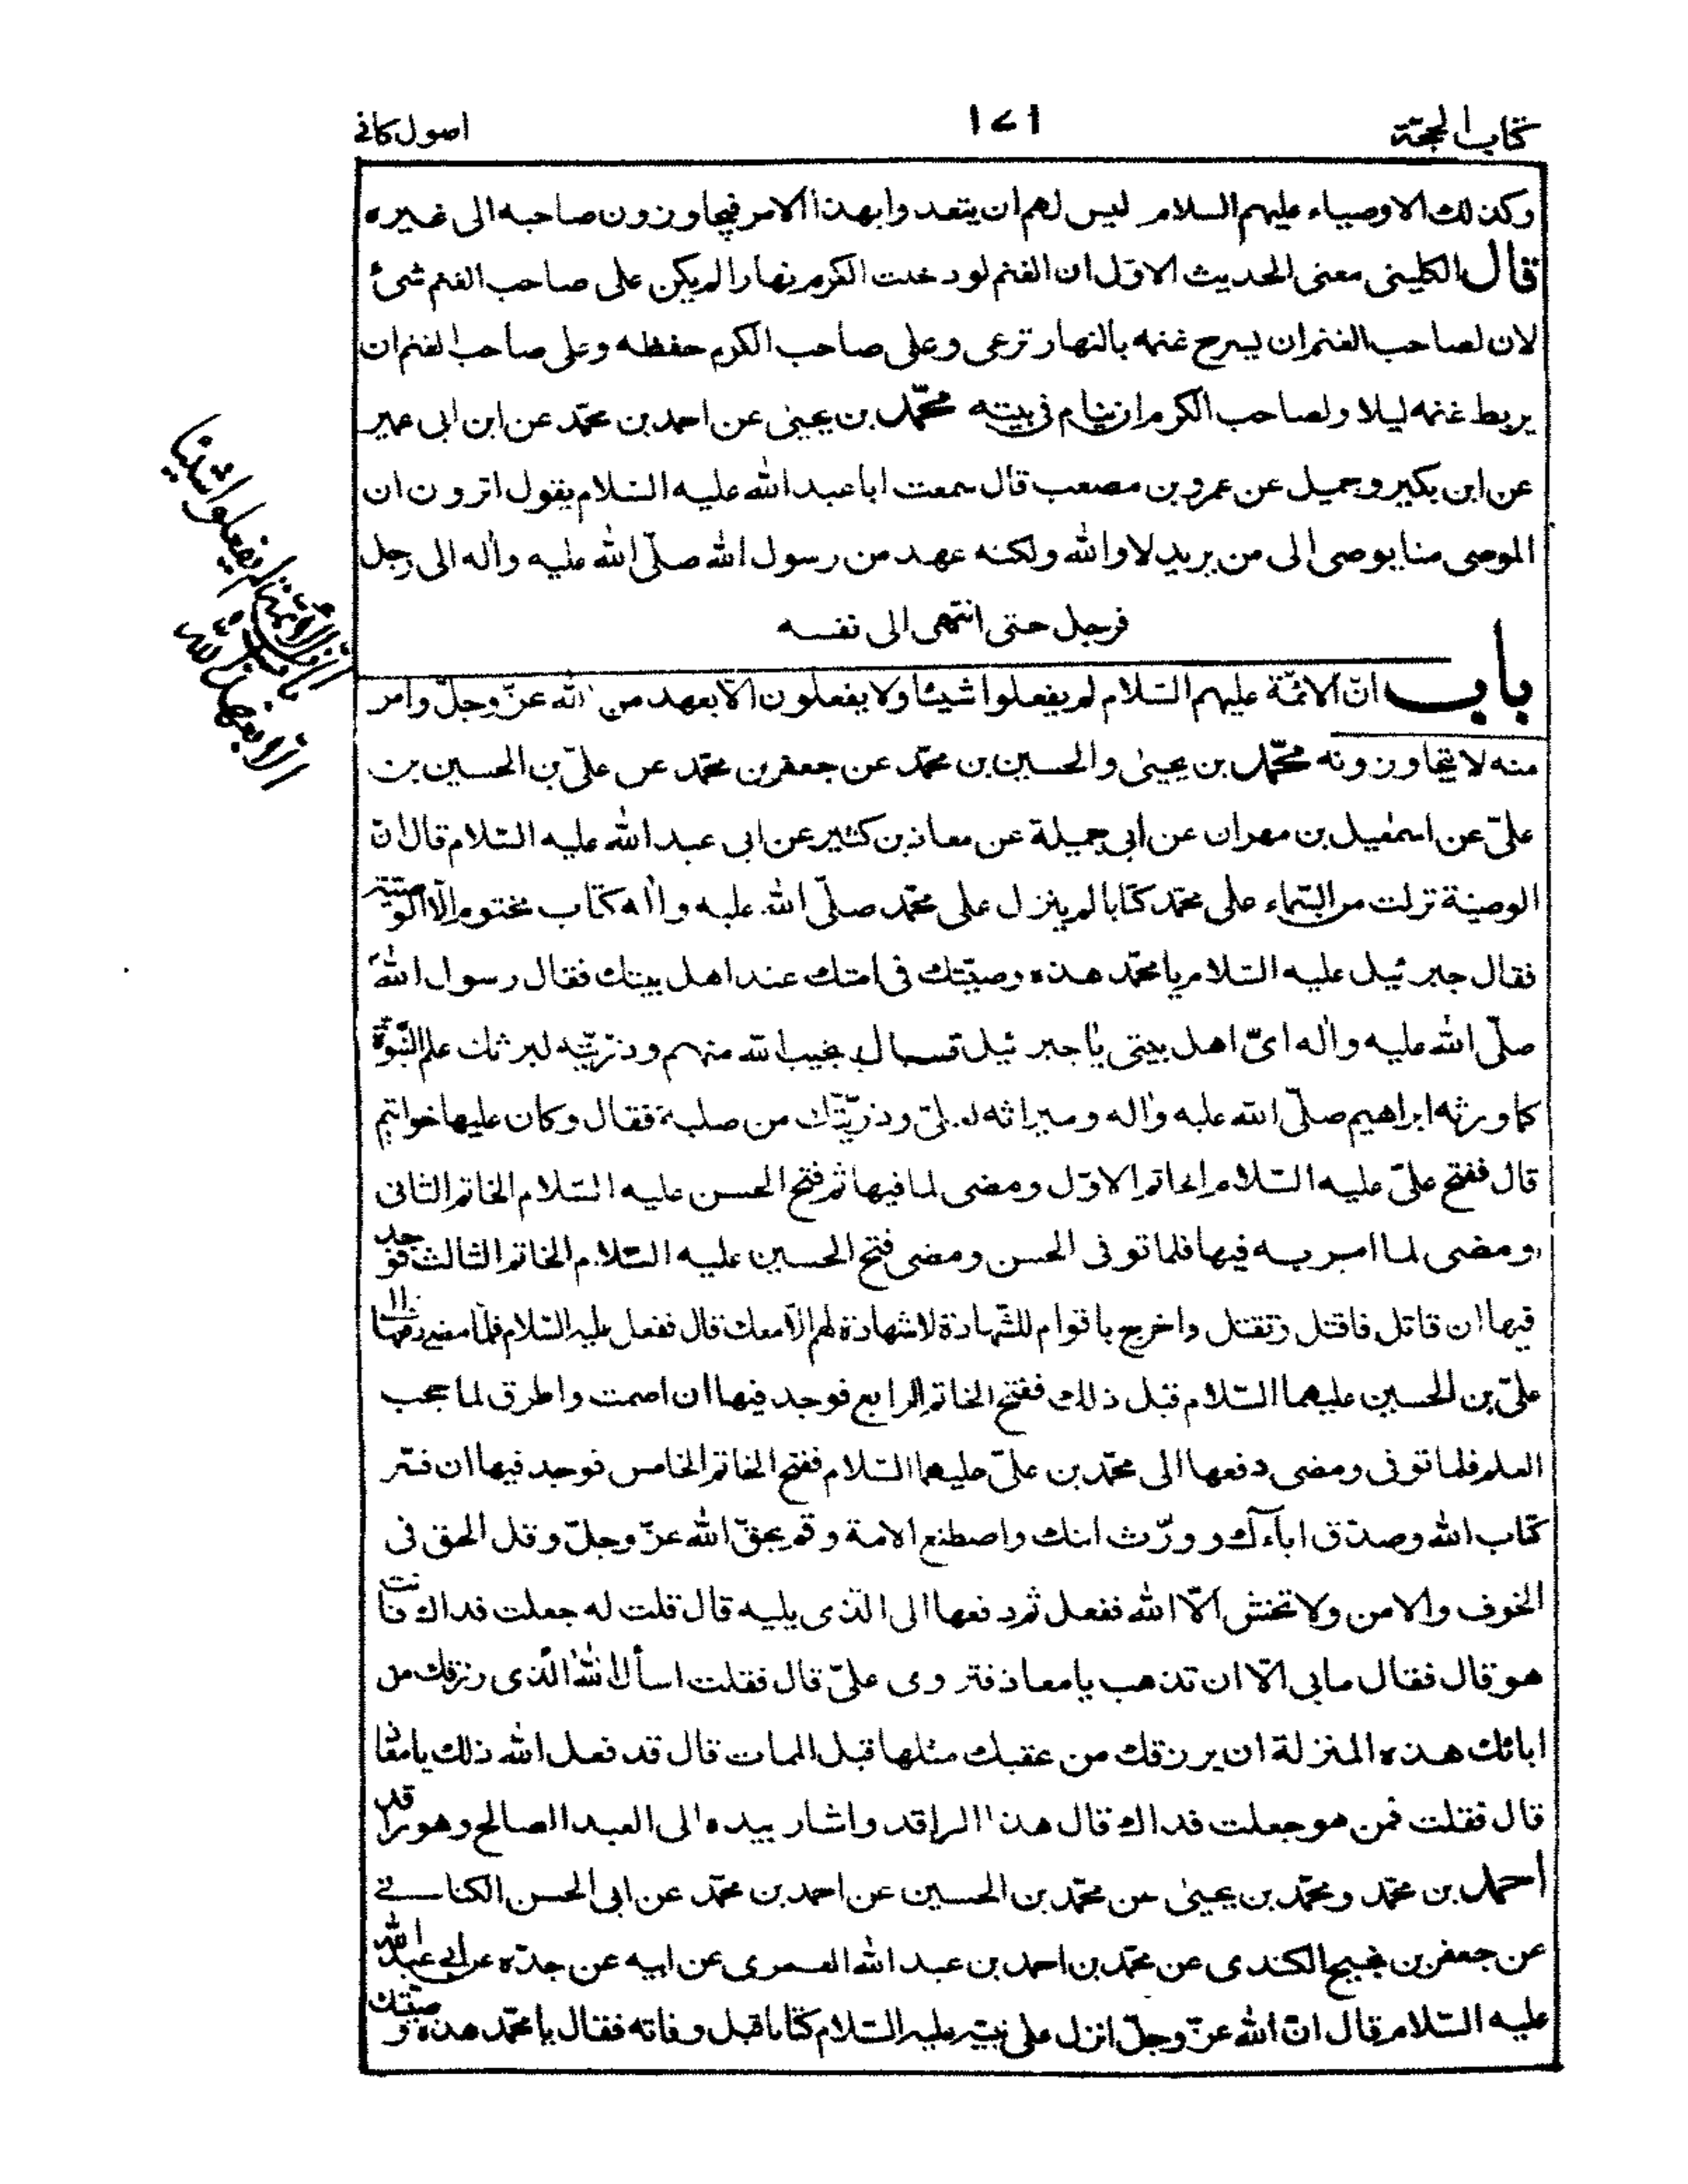 كتاب الحجة
١٧١
اصول كافى
وكذلك الاوصياء عليهم السلام ليس لهم ان يتعدوا بهذا الامر فيجاوزون صاحبه الى غيره
قال الكلينى معنى الحديث الاوّل ان الغنم لو دخلت الكرم نهارا لم يكن على صاحب الغنم شئ
لان لصاحب الغنم ان يسرح غنمه بالنهار ترعى وعلى صاحب الكرم حفظه وعلى صاحب الغنم ان
يربط غنمه ليلا ولصاحب الكرم ان ينام فى بيته محمّد بن يحيى عن احمد بن محمّد عن ابن ابى عمير
عن ابن بكير وجميل عن عمرو بن مصعب قال سمعت ابا عبد الله عليه السّلام يقول اترون ان
الموصى منا يوصى الى من يريد لا والله ولكنه عهد من رسول الله صلّى الله عليه واله الى رجل
فرجل حتى انتهى الى نفسه
باب انّ الائمّة عليهم السّلام لم يفعلوا شيئا ولا يفعلون الّا بعهد من الله عزّ وجلّ وامر
منه لا يتجاوزونه محمّد بن يحيى والحسين بن محمّد عن جعفر بن محمّد عن علىّ بن الحسين بن
علىّ عن اسمعيل بن مهران عن ابى جميلة عن معاذ بن كثير عن ابى عبد الله عليه السّلام قال انّ
الوصيّة نزلت من السّماء على محمّد كتابا لم ينزل على محمّد صلّى الله عليه واله كتاب مختوم الّا الوصيّة
فقال جبرئيل عليه السّلام يا محمّد هذه وصيّتك فى امتك عند اهل بيتك فقال رسول الله
صلّى الله عليه واله اىّ اهل بيتى يا جبرئيل قال نجيب الله منهم وذرّيّته ليرثك علم النّبوّة
كما ورثه ابراهيم صلّى الله عليه واله وميراثه لعلىّ وذرّيّتك من صلبه فقال وكان عليها خواتيم
قال ففتح علىّ عليه السّلام الخاتم الاوّل ومضى لما فيها ثم فتح الحسن عليه السّلام الخاتم الثانى
ومضى لما امر به فيها فلما توفى الحسن ومضى فتح الحسين عليه السّلام الخاتم الثالث فوجد
فيها ان قاتل فاقتل وتقتل واخرج باقوام للشّهادة لا شهادة لهم الّا معك قال ففعل عليه السّلام فلمّا مضى دفعها الى
علىّ بن الحسين عليهما السّلام قبل ذلك ففتح الخاتم الرابع فوجد فيها ان اصمت واطرق لما حجب
العلم فلما توفى ومضى دفعها الى محمّد بن علىّ عليهما السّلام ففتح الخاتم الخامس فوجد فيها ان فسّر
كتاب الله وصدّق اباءك وورّث ابنك واصطنع الامة وقم بحقّ الله عزّ وجلّ وقل الحق فى
الخوف والامن ولا تخش الّا الله ففعل ثم دفعها الى الّذى يليه قال قلت له جعلت فداك فانت
هو قال فقال ما بى الّا ان تذهب يا معاذ فتروى علىّ قال فقلت اسأل الله الّذى رزقك من
ابائك هذه المنزلة ان يرزقك من عقبك مثلها قبل الممات قال قد فعل الله ذلك يا معاذ
قال فقلت فمن هو جعلت فداك قال هذا الراقد واشار بيده الى العبد الصالح وهو راقد
احمد بن محمّد ومحمّد بن يحيى عن محمّد بن الحسين عن احمد بن محمّد عن ابى الحسن الكنانى
عن جعفر بن نجيح الكندى عن محمّد بن احمد بن عبد الله العمرى عن ابيه عن جدّه عن ابى عبد الله
عليه السّلام قال انّ الله عزّ وجلّ انزل على نبيّه عليه السّلام كتابا قبل وفاته فقال يا محمّد هذه وصيّتك
باب
ان الائمة لم يفعلوا شيئا
الا بعهد من الله